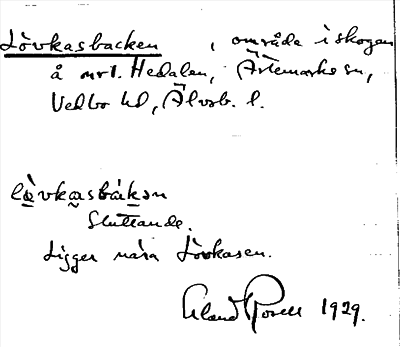 Lövkasbacken, område i skogen
å mrl. Hedalen, Ärtemarks sn,
Vedbo hd, Älvsb. l.
lö̀vkasbákən
Sluttande.
Ligger nära Lövkasen.
Erland Rosell 1929.